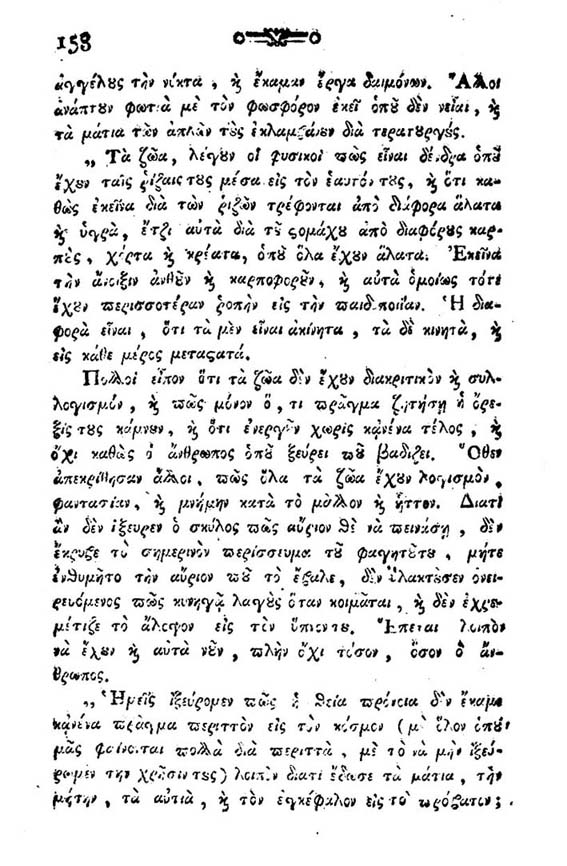 158
ἀγγέλους τὴν νύκτα, ϗ ἔκαμαν ἔργα δαιμόνων. Ἄλλοι
ἀνάπτουν φωτιὰ μὲ τὸν φωσφόρον ἐκεῖ ὁποῦ δὲν νεῖαι, ϗ
τὰ μάτια τῶν ἁπλῶν τοὺς ἐκλαμβάνουν διὰ τερατουργούς.
„ Τὰ ζῶα, λέγουν οἱ φυσικοὶ πῶς εἶναι δένδρα ὁποῦ
ἔχουν ταῖς ῥίζαις τους μέσα εἰς τὸν ἑαυτόν τους, ϗ ὅτι κα-
θὼς ἐκεῖνα διὰ τῶν ῥιζῶν τρέφονται ἀπὸ διάφορα ἅλατα
ϗ ὑγρὰ, ἔτζι αὐτὰ διὰ τοῦ στομάχου ἀπὸ διαφόρους καρ-
ποὺς, χόρτα ϗ κρέατα, ὁποῦ ὅλα ἔχουν ἅλατα. Ἐκεῖνα
τὴν ἄνοιξιν ἀνθοῦν ϗ καρποφοροῦν, ϗ αὐτὰ ὁμοίως τότε
ἔχουν περισσοτέραν ῥοπὴν εἰς τὴν παιδοποιΐαν. Ἡ δια-
φορὰ εἶναι, ὅτι τὰ μὲν εἶναι ἀκίνητα, τὰ δὲ κινητὰ, ϗ
εἰς κάθε μέρος μεταστατά.
Πολλοὶ εἶπον ὅτι τὰ ζῶα δὲν ἔχουν διακριτικὸν ϗ συλ-
λογισμὸν, ϗ πῶς μόνον ὅ, τι πρᾶγμα ζητήσῃ ἡ ὄρε-
ξίς τους κάμνουν, ϗ ὅτι ἐνεργοῦν χωρὶς κᾀνένα τέλος, ϗ
ὄχι καθὼς ὁ ἄνθρωπος ὁποῦ ξεύρει ποῦ βαδίζει. Ὅθεν
ἀπεκρίθησαν ἄλλοι, πῶς ὅλα τὰ ζῶα ἔχουν λογισμὸν,
φαντασίαν, ϗ μνήμην κατὰ τὸ μᾶλλον ϗ ἧττον. Διατὶ
ἂν δὲν ἤξευρεν ὁ σκύλος πῶς αὔριον θὲ νὰ πεινάσῃ, δὲν
ἔκρυβε τὸ σημερινὸν περίσσευμα τοῦ φαγητοῦ του, μήτε
ἐνθυμῆτο τὴν αὔριον ποῦ τὸ ἔβαλε, δὲν ὑλακτοῦσεν ὀνει-
ρευόμενος πῶς κυνηγᾷ λαγοὺς ὅταν κοιμᾶται, ϗ δὲν ἐχρε-
μέτιζε τὸ ἄλογον εἰς τὸν ὕπνον του. Ἕπεται λοιπὸν
νὰ ἔχουν ϗ αὐτὰ νοῦν, πλὴν ὄχι τόσον, ὅσον ὁ ἄν-
θρωπος.
„ Ἡμεῖς ἠξεύρομεν πῶς ἡ θεία πρόνοια δὲν ἔκαμε
κᾀνένα πρᾶγμα περιττὸν εἰς τὸν κόσμον (μὲ ὅλον ὁποῦ
μᾶς φαίνονται πολλὰ διὰ περιττὰ, μὲ τὸ νὰ μὴν ἠξεύ-
ρωμεν τὴν χρῆσίν τους) λοιπὸν διατὶ ἔδωσε τὰ μάτια, τὴν
μύτην, τὰ αὐτιὰ, ϗ τὸν ἐγκέφαλον εἰς τὸ πρόβατον;